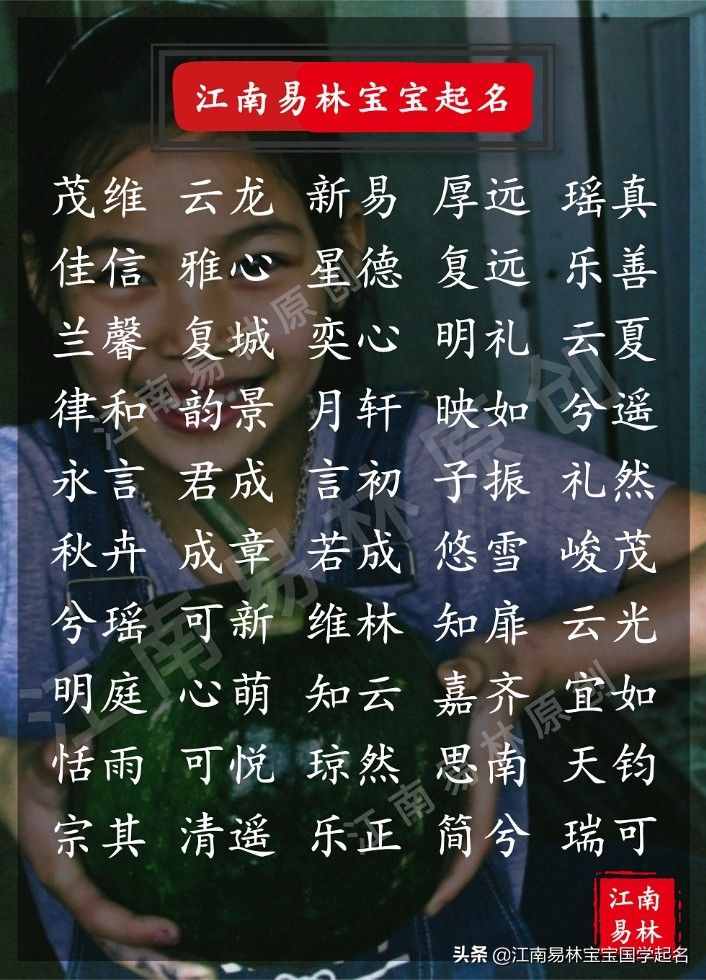 江南易林宝宝起名
茂维 云龙 新易 厚远 瑶真
佳信 雅心 星德 复远 乐善
兰馨 复城 奕心 明礼 云夏
律和 韵景 月轩 映如 兮遥
永言 君成 言初 子振 礼然
秋卉 成章 若成 悠雪 峻茂
兮瑶 可新 维林 知扉 云光
明庭 心萌 知云 嘉齐 宜如
恬雨 可悦 琼然 思南 天钧
宗其 清遥 乐正 简兮 瑞可
江南易林原创
江南易林原创
江南易林原创
江南
易林
头条 @江南易林宝宝国学起名